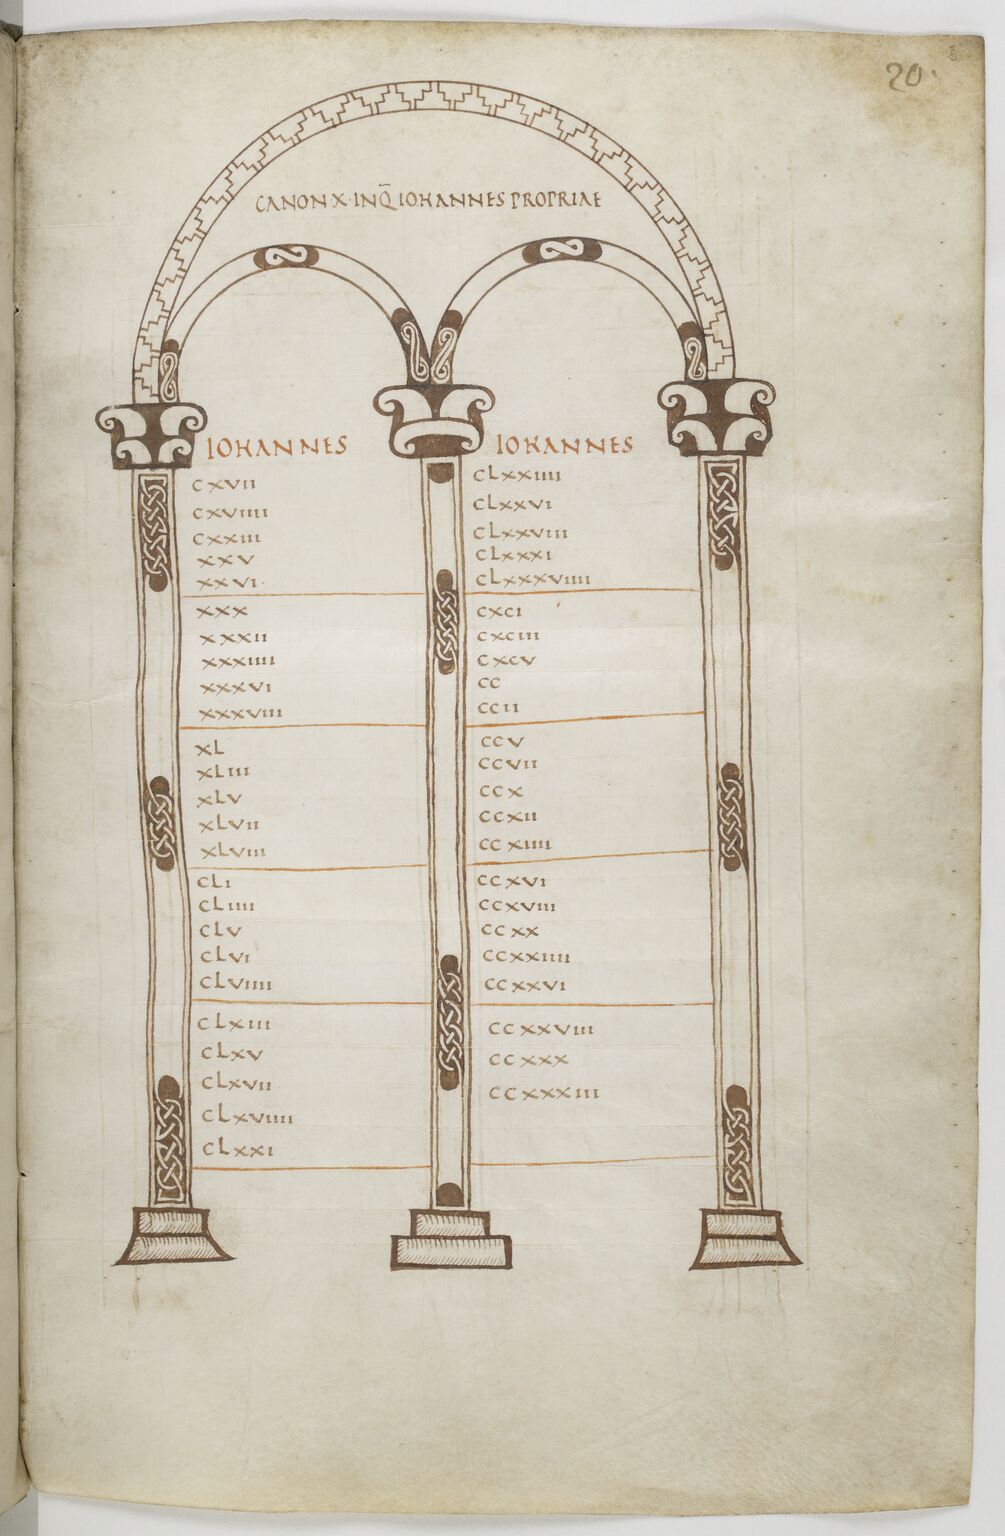 20
CANON X · IN Q̄ IOHANNES PROPRIAE
IOHANNES
CXVII
CXVIIII
CXXIII
XXV
XXVI
XXX
XXXII
XXXIIII
XXXVI
XXXVIII
XL
XLIII
XLV
XLVII
XLVIII
CLI
CLIIII
CLV
CLVI
CLVIIII
CLXIII
CLXV
CLXVII
CLXVIIII
CLXXI
IOHANNES
CLXXIIII
CLXXVI
CLXXVIII
CLXXXI
CLXXXVIIII
CXCI
CXCIII
CXCV
CC
CCII
CCV
CCVII
CCX
CCXII
CCXIIII
CCXVI
CCXVIII
CCXX
CCXXIIII
CCXXVI
CCXXVIII
CCXXX
CCXXXIII